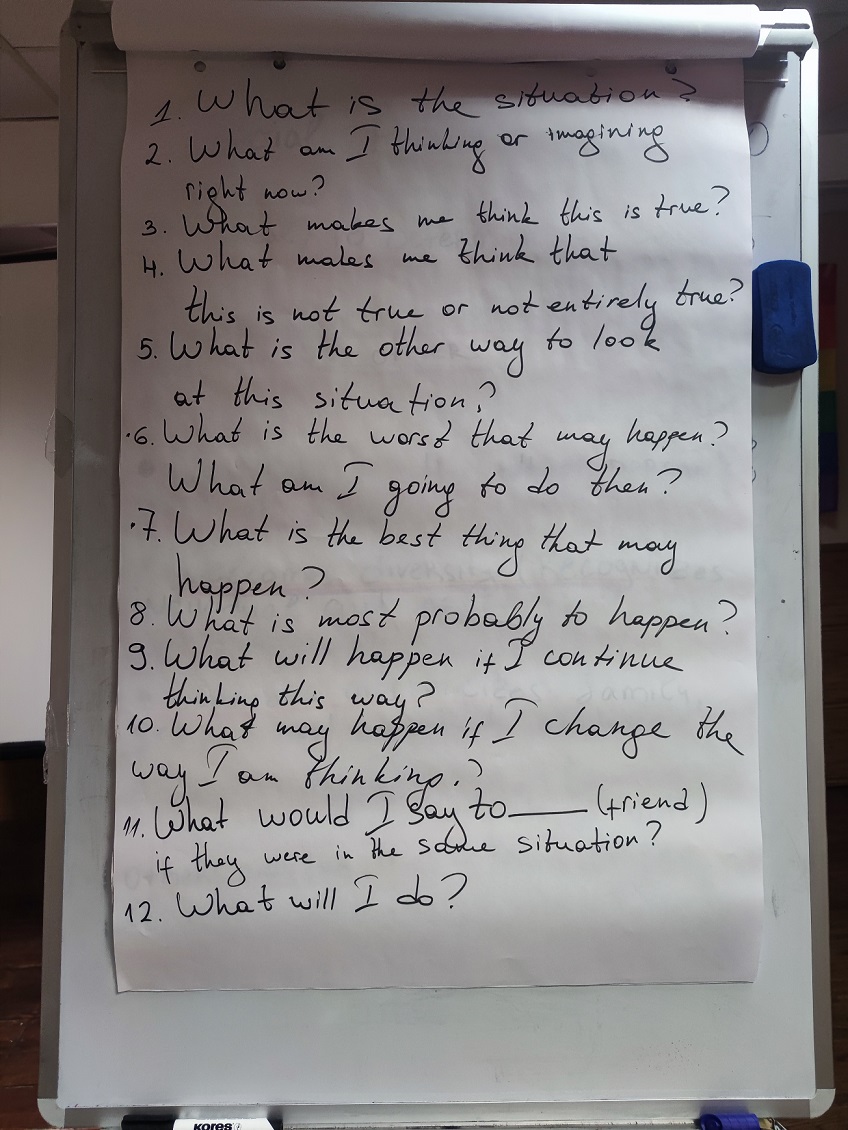 1. What is the situation?
2. What am I thinking or imagining
right now?
3. What makes me think this is true?
4. What makes me think that
this is not true or not entirely true?
5. What is the other way to look
at this situation?
6. What is the worst that may happen?
What am I going to do then?
7. What is the best thing that may
happen?
8. What is most probably to happen?
9. What will happen if I continue
thinking this way?
10. What may happen if I change the
way I am thinking?
11. What would I say to____ (friend)
if they were in the same situation?
12. What will I do?
KORES